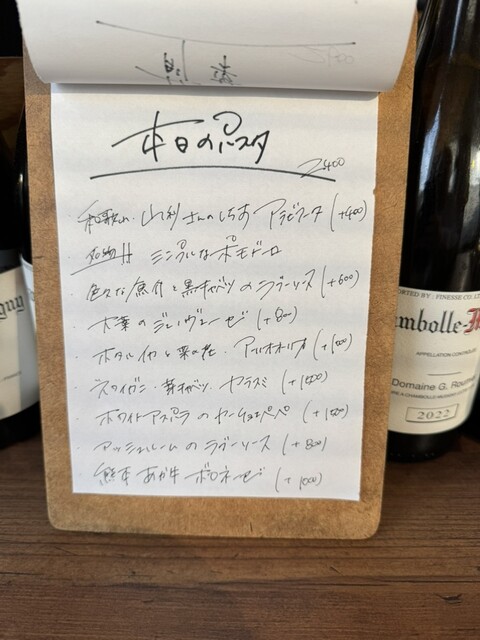 本日のパスタ
2400
和歌山 山利さんのしらす アラビアータ (+400)
名物!! シンプルなポモドーロ
色々な魚介と黒キャベツのラグーソース (+600)
木の葉のジェノヴェーゼ (+800)
ホタルイカと菜の花 アーリオオーリオ (+1000)
ズワイガニ・芽キャベツ カラスミ (+1400)
ホワイトアスパラのカーチョエペペ (+1200)
マッシュルームのラグーソース (+800)
熊本 あか牛 ボロネーゼ (+1000)
PORTED BY : FINESSE CO. LT
mbolle-M
APPELLATION CONTRÔLÉE
Domaine G. Roumi
2022
gny